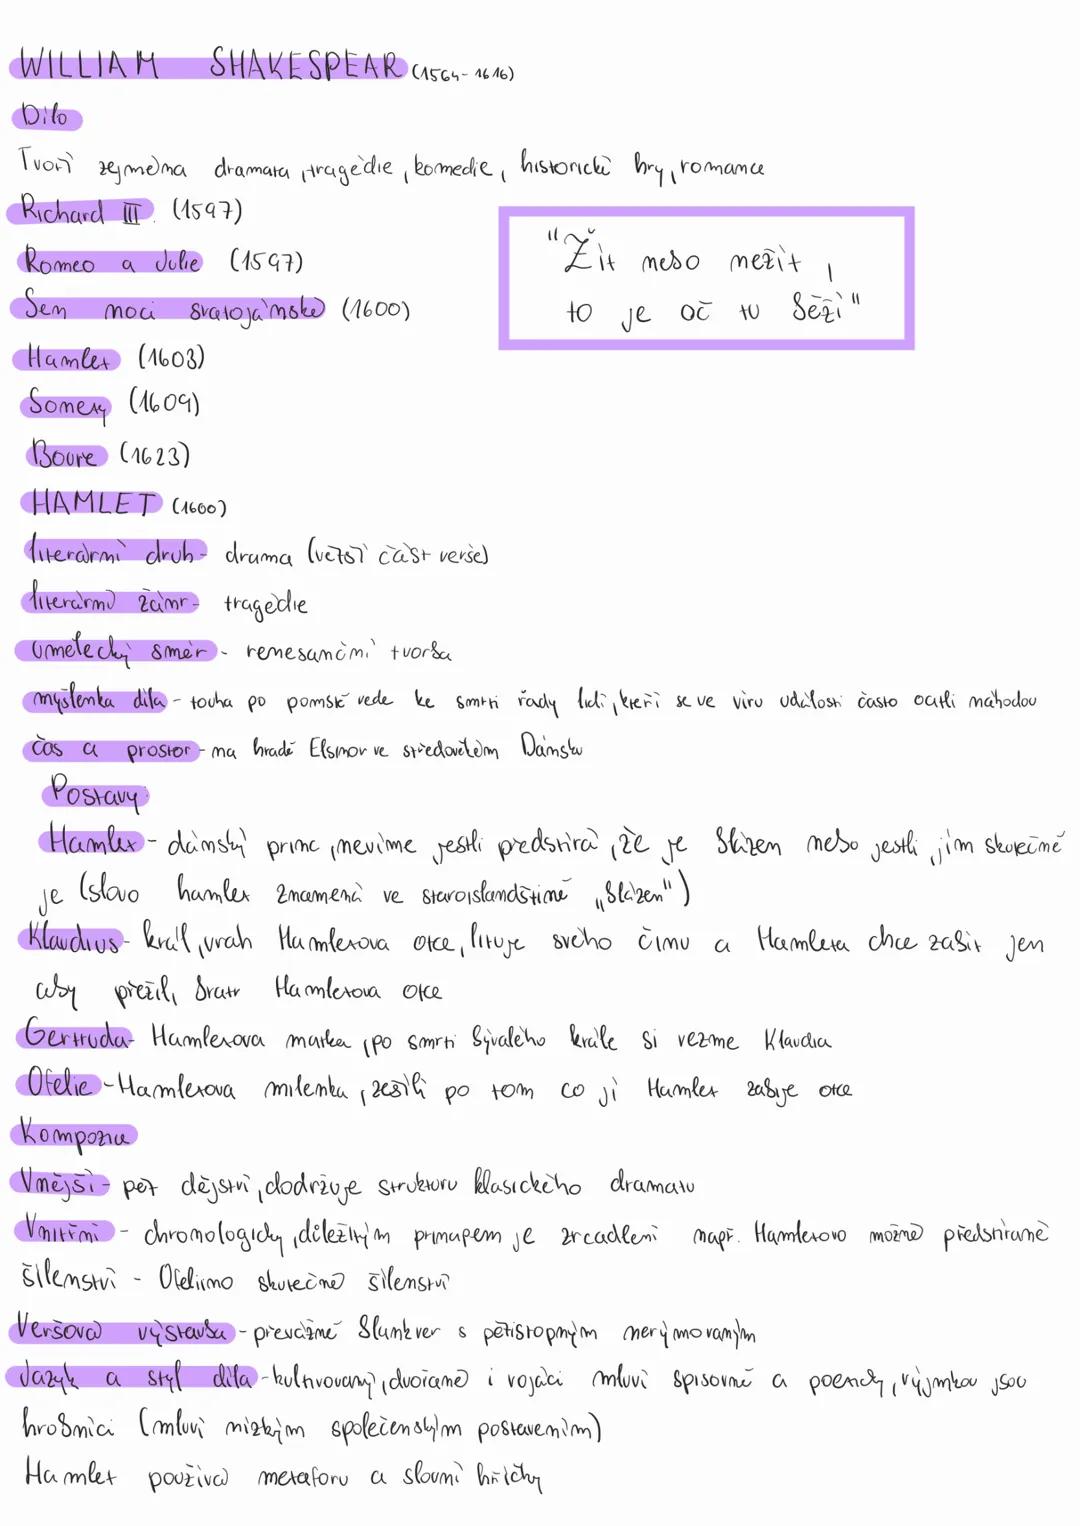 WILLIAM SHAKESPEAR (1564-1616)
Dílo
Tvoří zejména dramata, tragédie, komedie, historické hry, romance
Richard III. (1597)
Romeo a Julie (1597)
"Žít nebo nežít,
to je oč tu běží"
Sen noci svatojánské (1600)
Hamlet (1603)
Sonety (1609)
Bouře (1623)
HAMLET (1600)
literární druh - drama (větší část verše)
literární žánr - tragédie
umělecký směr - renesanční tvorba
myšlenka díla - touha po pomstě vede ke smrti řady lidí, kteří se ve víru událostí často ocitli náhodou
čas a prostor - na hradě Elsinor ve středověkém Dánsku
Postavy:
Hamlet - dánský princ, nevíme jestli předstírá, že je blázen nebo jestli jím skutečně
je (slovo hamlet znamená ve staroislandštině "blázen")
Klaudius - král, vrah Hamletova otce, lituje svého činu a Hamleta chce zabít jen
aby přežil, bratr Hamletova otce
Gertruda - Hamletova matka, po smrti bývalého krále si vezme Klaudia
Ofélie - Hamletova milenka, zešílí po tom co jí Hamlet zabije otce
Kompozice
Vnější - pět dějství, dodržuje strukturu klasického dramatu
Vnitřní - chronologicky, důležitým principem je zrcadlení např. Hamletovo možné předstírané
šílenství - Ofeliino skutečné šílenství
Veršová výstavba - převážně blankvers pětistopným nerýmovaným
Jazyk a styl díla - kultivovaný, dvořané i vojáci mluví spisovně a poeticky, výjimkou jsou
hrobníci (mluví nízkým společenským postavením)
Hamlet používá metaforu a slovní hříčky